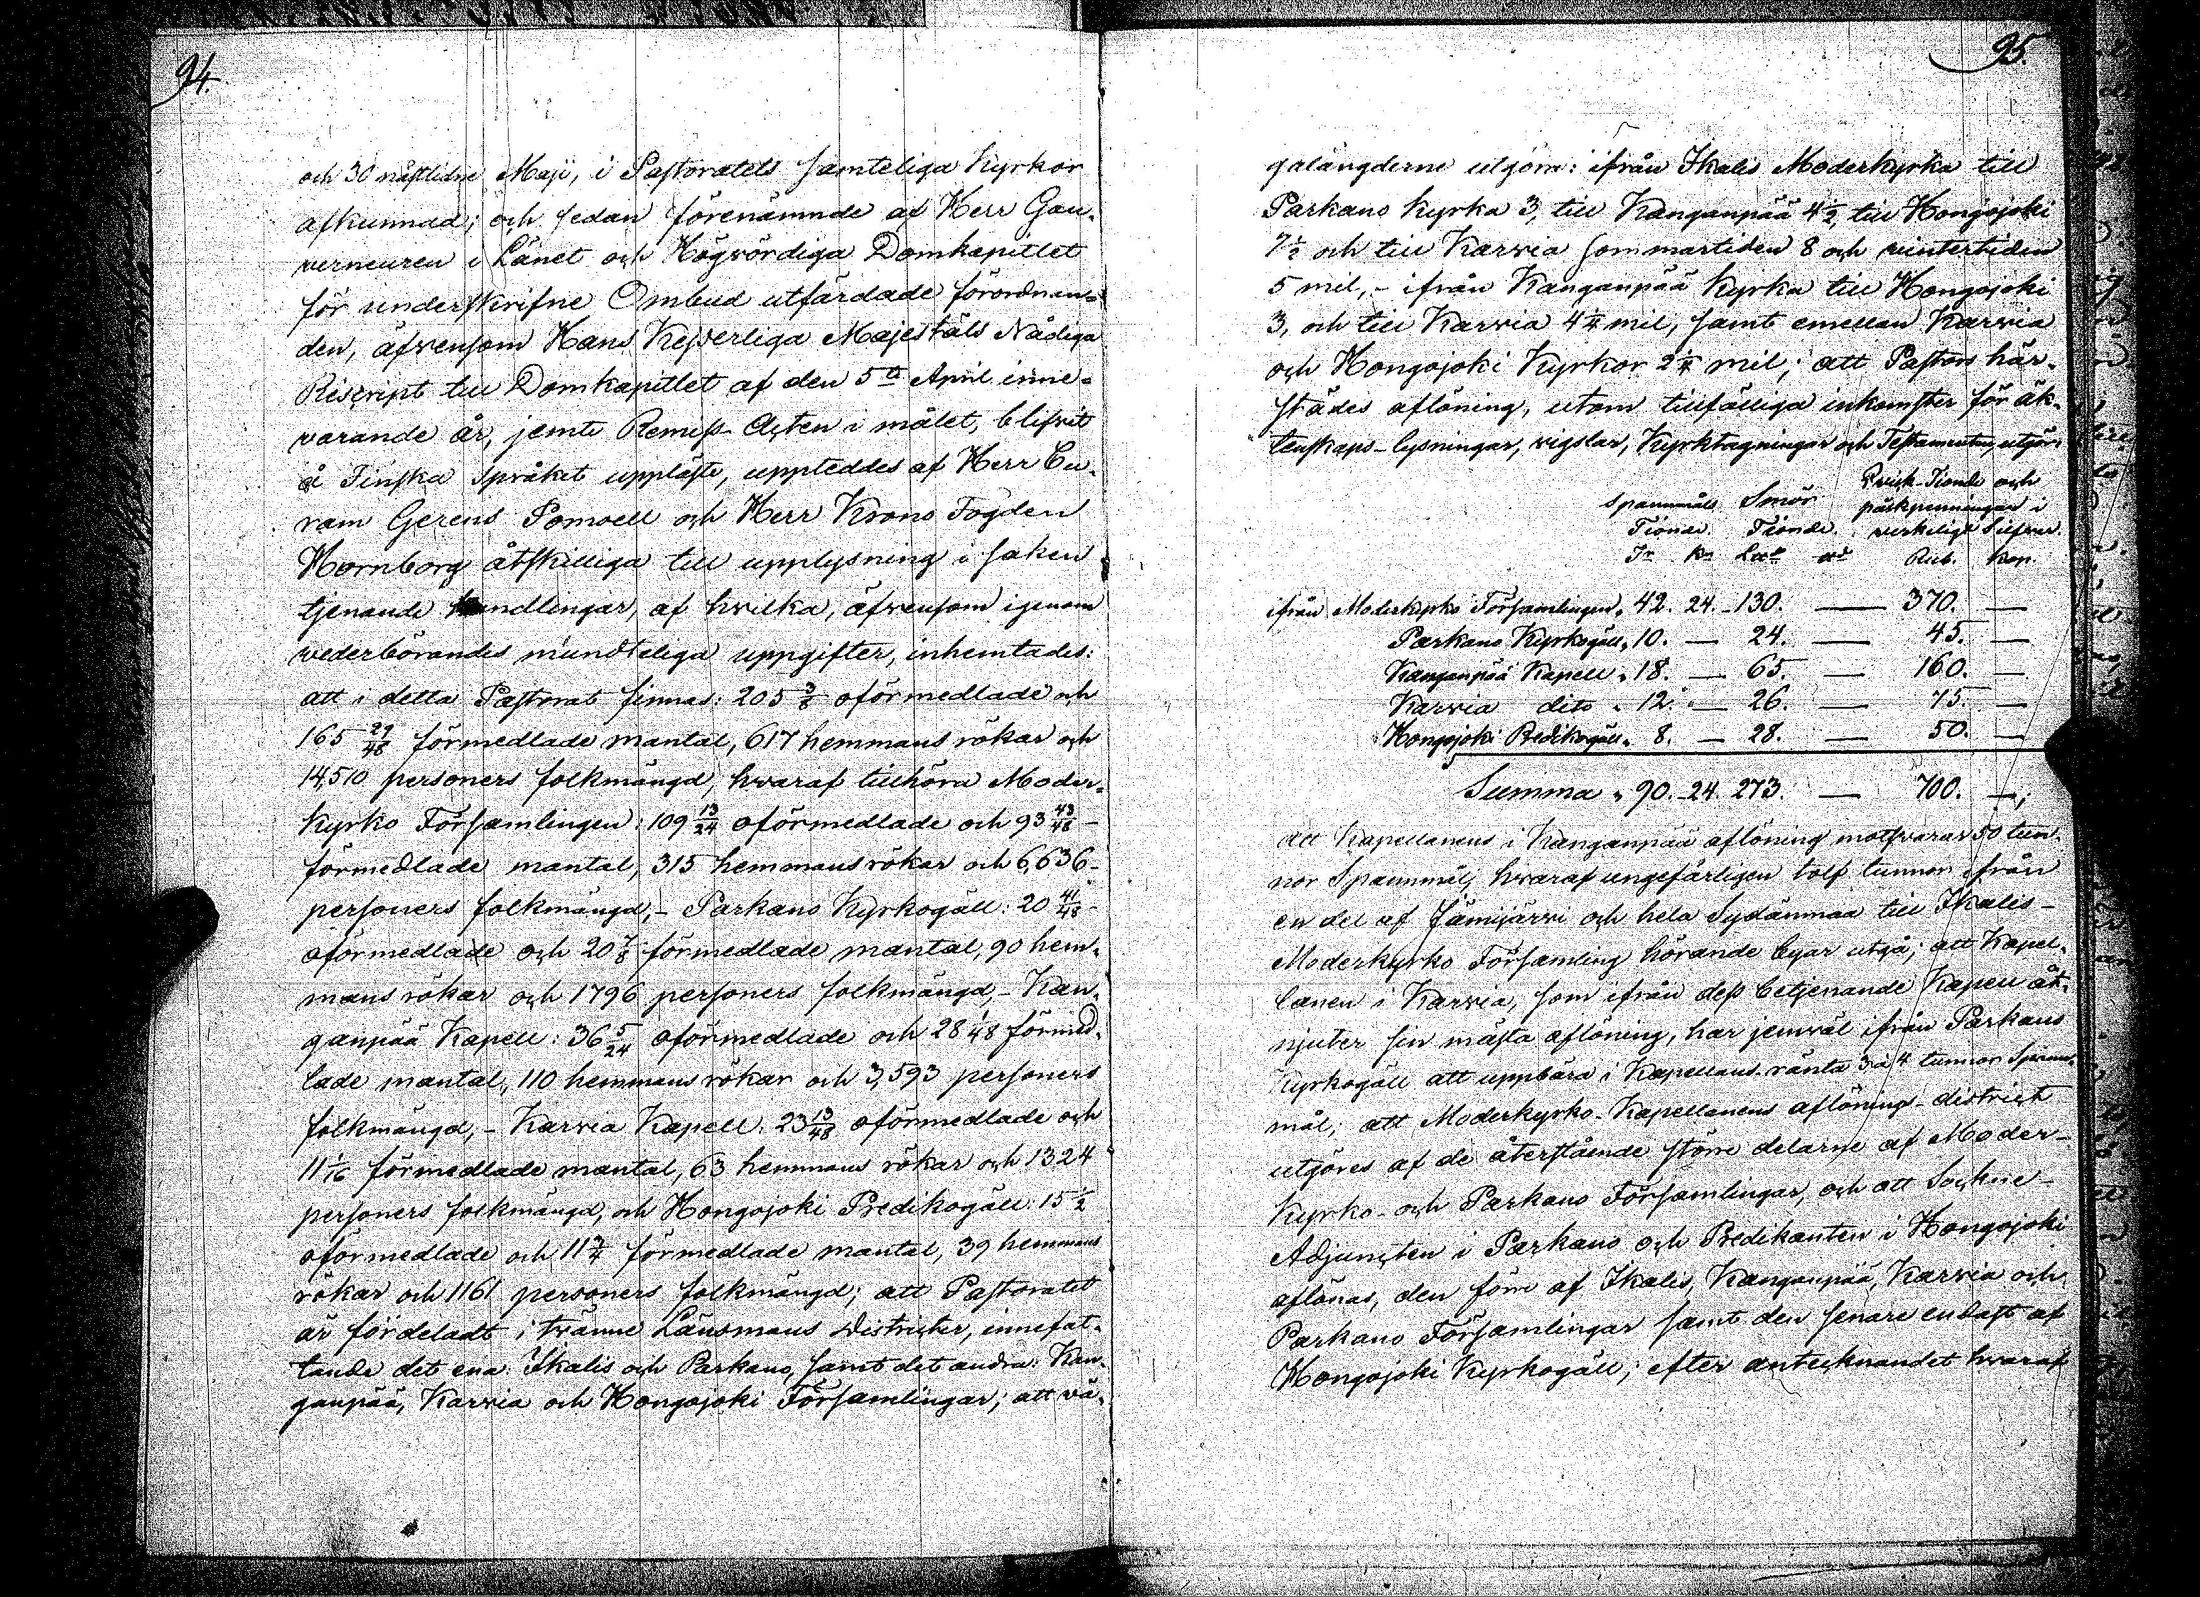 94.
och 30 nästlidne Maji, i Pastoratets samteliga Kyrkor
afkunnad; och sedan förenämnde af Herr Gou-
verneuren i Länet och Högvördiga Domkapitlet
för underskrifne Ombud utfärdade förordnan-
den, äfvensom Hans Kejserliga Majestäts Nådiga
Rescript till Domkapitlet af den 5te April inne-
varande år, jemte Remiss-Acten i målet, blifvit
å Finska Språket uppläste, uppteddes af Herr Cu-
ram Gerens Pomoell och Herr Krono Fogden
Hornborg åtskilliga till upplysning i saken
tjenande handlingar, af hvilka, äfvensom igenom
vederbörandes mundteliga uppgifter, inhemtades:
att i detta Pastorat finnas: 205 3/8 oförmedlade och
165 29/48 förmedlade mantal, 617 hemmans rökar och
14,510 personers folkmängd, hvaraf tillhöra Moder-
kyrko Församlingen: 109 13/24 oförmedlade och 93 43/48
förmedlade mantal, 315 hemmans rökar och 6,636
personers folkmängd, - Parkano Kyrkogäll: 20 41/48
oförmedlade och 20 7/8 förmedlade mantal, 90 hem-
mans rökar och 1796 personers folkmängd, - Kan-
ganpää Kapell: 36 5/24 oförmedlade och 28 1/48 förmed-
lade mantal, 110 hemmans rökar och 3,593 personers
folkmängd, - Karvia Kapell. 23 13/48 oförmedlade och
11 1/16 förmedlade mantal, 63 hemmans rökar och 1324
personers folkmängd, och Hongojoki Predikogäll: 15 1/2
oförmedlade och 11 3/4 förmedlade mantal, 39 hemmans
rökar och 1161 personers folkmängd; att Pastoratet
är fördeladt i tvänne Länsmans Districter, innefat-
tande det ena: Ikalis och Parkano, samt det andra: Kan-
ganpää, Karvia och Hongojoki Församlingar; att vä-
95.
galängderne utgöra: ifrån Ikalis Moderkyrka till
Parkano Kyrka 3, till Kanganpää 4 1/2, till Hongojoki
7 1/2 och till Karvia sommartiden 8 och vintertiden
5 mil, - ifrån Kanganpää Kyrka till Hongojoki
3, och till Karvia 4 1/4 mil, samt emellan Karvia
och Hongojoki Kyrkor 2 1/4 mil; att Pastors här-
städes aflöning, utom tillfälliga inkomster för äk-
tenskaps-lysningar, vigslar, Kyrktagningar och Testamenten, utgör:
Spannmåls Tionde. Smör Tionde. Qvick-Tionde och påskpenningar i verkeligt Silfver.
Tr Kr Rub. Kop.
ifrån Moderkyrko Församlingen, 42. 24. 130. — 370. —
Parkano Kyrkogäll, 10. — 24. — 45. —
Kanganpää Kapell, 18. — 65. — 160. —
Karvia dito, 12. — 26. — 75. —
Hongojoki Predikogäll, 8. — 28. — 50. —
Summa, 90. 24. 273. — 700. —;
att Kapellanens i Kanganpää aflöning motsvarar 50 tun-
nor Spannmål, hvaraf ungefärligen tolf tunnor ifrån
en del af Jämijärvi och hela Sydänmaa till Ikalis
Moderkyrko Församling hörande byar utgå; att Kapel-
lanen i Karvia, som ifrån dess betjenande Kapell åt-
njuter sin mästa aflöning, har jemväl ifrån Parkano
Kyrkogäll att uppbära i Kapellans-ränta 3 à 4 tunnor Spann-
mål; att Moderkyrko-Kapellanens aflönings-district
utgöres af de återstående större delarne af Moder-
Kyrko- och Parkano Församlingar, och att Sockne-
Adjuncten i Parkano och Predikanten i Hongojoki
aflönas, den förre af Ikalis, Kanganpää, Karvia och
Parkano Församlingar samt den senare endast af
Hongojoki Kyrkogäll; efter antecknandet hvaraf